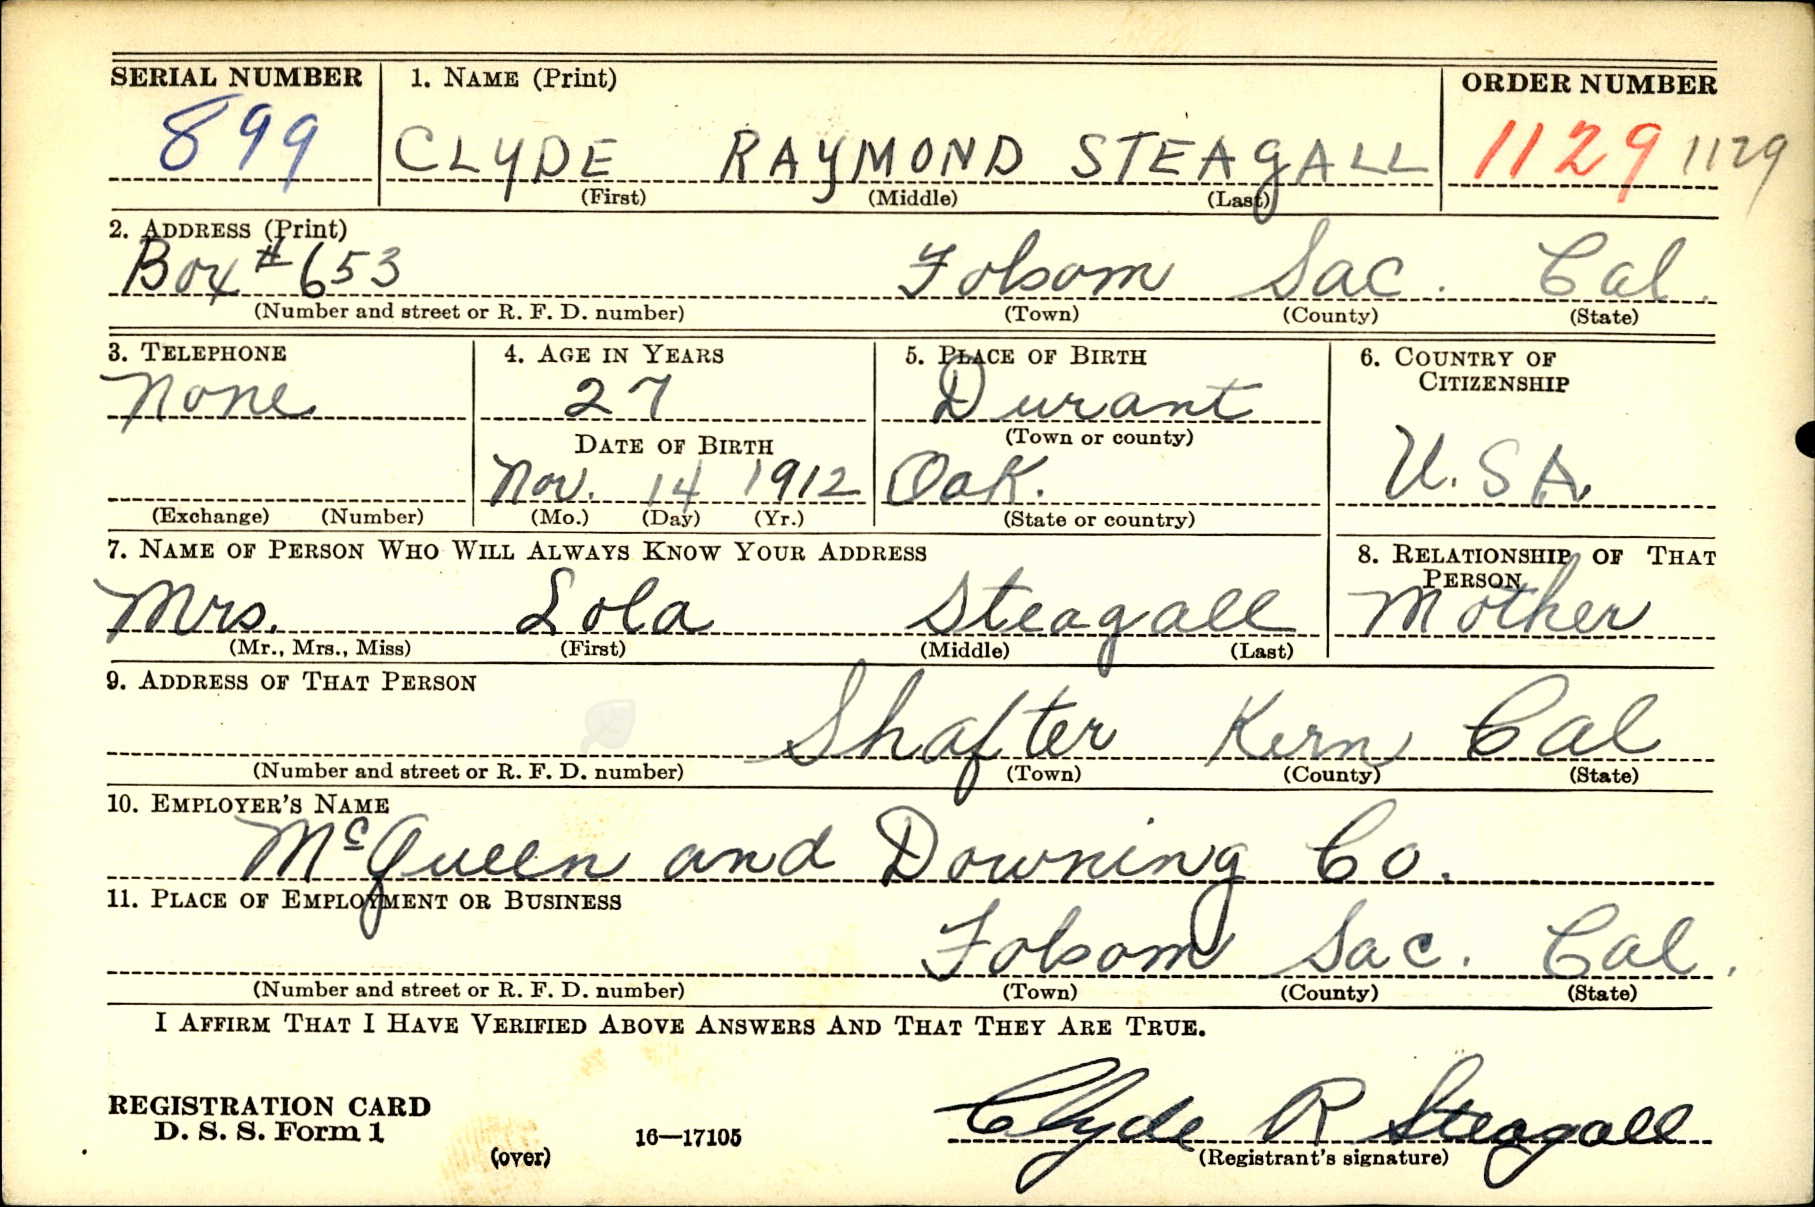 SERIAL NUMBER 1. NAME (Print) ORDER NUMBER
899 CLYDE RAYMOND STEAGALL 1129 1129
(First) (Middle) (Last)
2. ADDRESS (Print)
Box #653 Folsom Sac. Cal.
(Number and street or R. F. D. number) (Town) (County) (State)
3. TELEPHONE 4. AGE IN YEARS 5. PLACE OF BIRTH 6. COUNTRY OF CITIZENSHIP
None 27 Durant
DATE OF BIRTH (Town or county)
Nov. 14 1912 Oak. U.S.A.
(Exchange) (Number) (Mo.) (Day) (Yr.) (State or country)
7. NAME OF PERSON WHO WILL ALWAYS KNOW YOUR ADDRESS 8. RELATIONSHIP OF THAT PERSON
Mrs. Lola Steagall Mother
(Mr., Mrs., Miss) (First) (Middle) (Last)
9. ADDRESS OF THAT PERSON
Shafter Kern Cal
(Number and street or R. F. D. number) (Town) (County) (State)
10. EMPLOYER'S NAME
McQueen and Downing Co.
11. PLACE OF EMPLOYMENT OR BUSINESS
Folsom Sac. Cal.
(Number and street or R. F. D. number) (Town) (County) (State)
I AFFIRM THAT I HAVE VERIFIED ABOVE ANSWERS AND THAT THEY ARE TRUE.
REGISTRATION CARD
D. S. S. Form 1 16—17105 Clyde R Steagall
(over) (Registrant's signature)